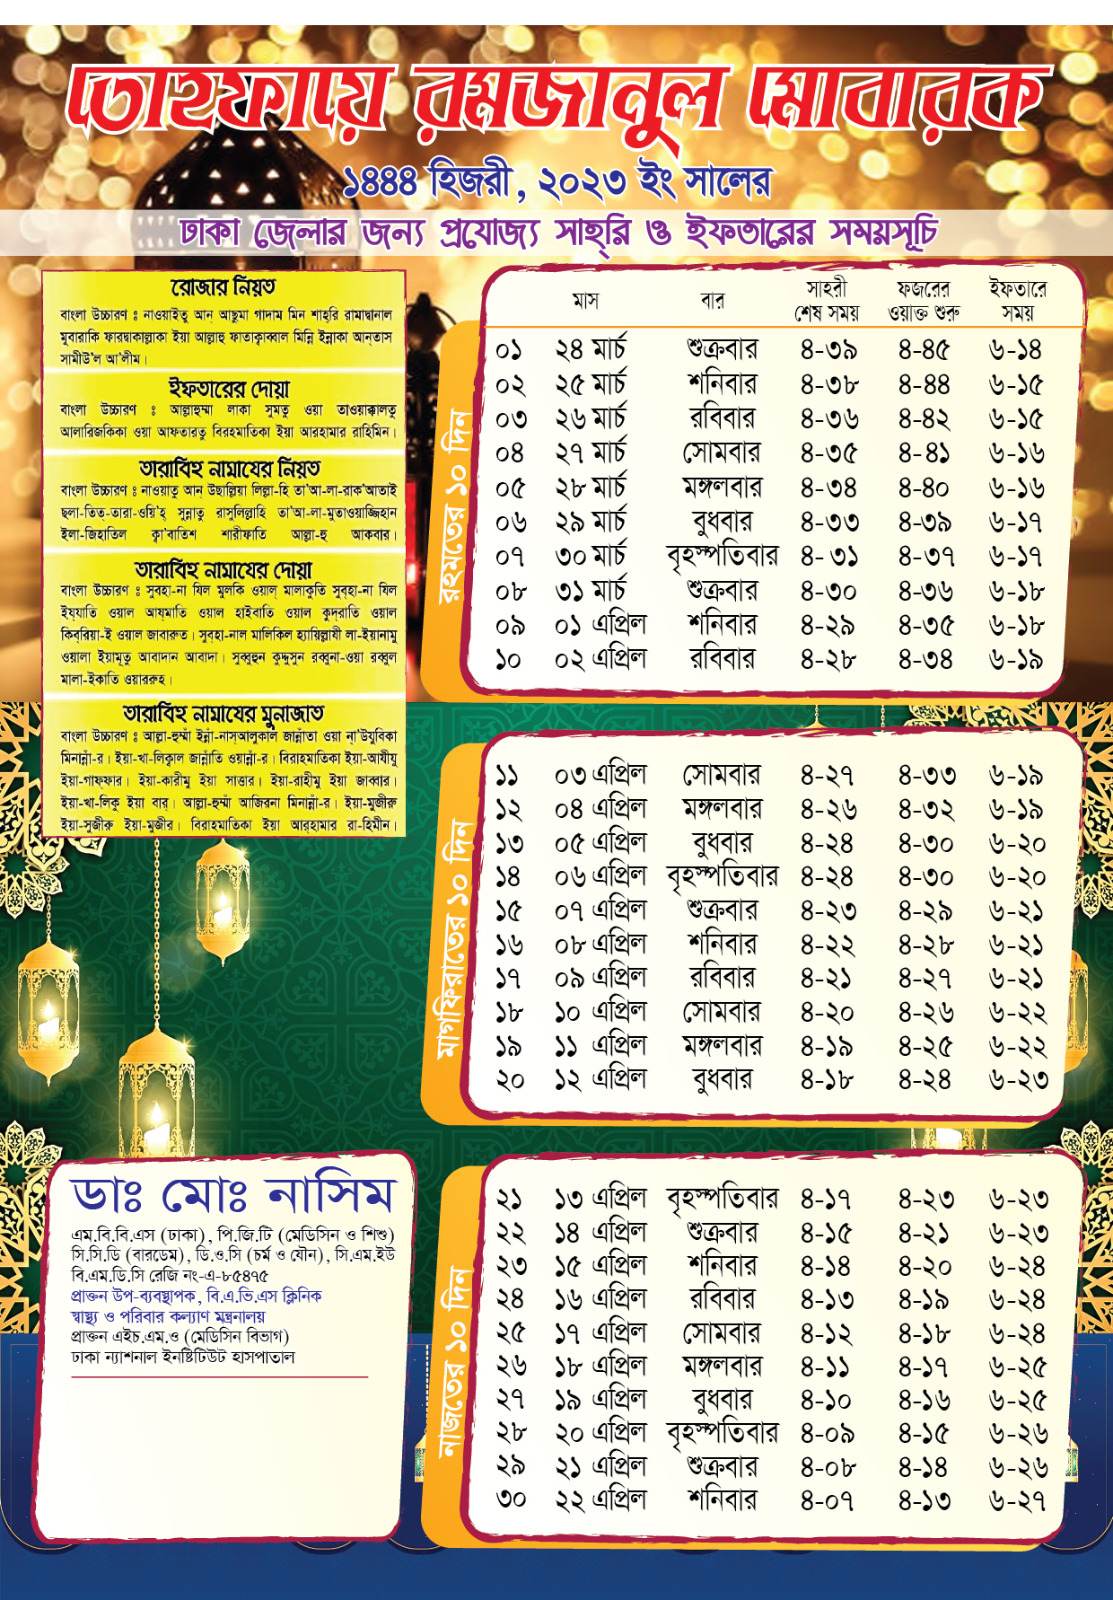 তোহফায়ে রমজানুল মোবারক
১৪৪৪ হিজরী, ২০২৩ ইং সালের
ঢাকা জেলার জন্য প্রযোজ্য সাহ্‌রি ও ইফতারের সময়সূচি
রোজার নিয়ত
বাংলা উচ্চারণ ঃ নাওয়াইতু আন্ আছুমা গাদাম মিন শাহ্‌রি রামাদ্বানাল
মুবারাকি ফারদ্বাকাল্লাকা ইয়া আল্লাহু ফাতাক্বাব্বাল মিন্নি ইন্নাকা আন্‌তাস
সামীউ'ল আ'লীম।
ইফতারের দোয়া
বাংলা উচ্চারণ ঃ আল্লাহুম্মা লাকা সুমতু ওয়া তাওয়াক্কালতু
আলারিজকিকা ওয়া আফতারতু বিরহমাতিকা ইয়া আরহামার রাহিমিন।
তারাবিহ নামাযের নিয়ত
বাংলা উচ্চারণ ঃ নাওয়াতু আন্ উছাল্লিয়া লিল্লা-হি তা'আ-লা-রাক'আতাই
ছলা-তিত্-তারা-ওয়ি'হ্ সুন্নাতু রাসুলিল্লাহি তা'আ-লা-মুতাওয়াজ্জিহান
ইলা-জিহাতিল ক্বা'বাতিশ শারীফাতি আল্লা-হু আকবার।
তারাবিহ নামাযের দোয়া
বাংলা উচ্চারণ ঃ সুবহা-না যিল মুলকি ওয়াল্ মালাকুতি সুব্‌হা-না যিল
ইয্‌যাতি ওয়াল আয্‌মাতি ওয়াল হাইবাতি ওয়াল কুদ্‌রাতি ওয়াল
কিব্‌রিয়া-ই ওয়াল জাবারুত। সুবহা-নাল মালিকিল হ্যায়িল্লাযী লা-ইয়ানামু
ওয়ালা ইয়ামূতু আবাদান আবাদা। সুব্বুহুন কুদ্দুসুন রব্বুনা-ওয়া রব্বুল
মালা-ইকাতি ওয়াররুহ।
তারাবিহ নামাযের মুনাজাত
বাংলা উচ্চারণ ঃ আল্লা-হুম্মাঁ ইন্নাঁ-নাস্‌আলুকাল জান্নাঁতা ওয়া না'উযুবিকা
মিনান্নাঁ-র। ইয়া-খা-লিক্বাল জান্নাঁতি ওয়ান্নাঁ-র। বিরাহমাতিকা ইয়া-আযীযু
ইয়া-গাফ্‌ফার। ইয়া-কারীমু ইয়া সাত্তার। ইয়া-রাহীমু ইয়া জাব্বার।
ইয়া-খা-লিকু ইয়া বার্। আল্লা-হুম্মাঁ আজিরনা মিনান্নাঁ-র। ইয়া-মুজীরু
ইয়া-সুজীরু ইয়া-মুজীর। বিরাহমাতিকা ইয়া আর্‌হামার রা-হিমীন।
মাস বার সাহরী শেষ সময় ফজরের ওয়াক্ত শুরু ইফতারে সময়
রহমতের ১০ দিন
০১ ২৪ মার্চ শুক্রবার ৪-৩৯ ৪-৪৫ ৬-১৪
০২ ২৫ মার্চ শনিবার ৪-৩৮ ৪-৪৪ ৬-১৫
০৩ ২৬ মার্চ রবিবার ৪-৩৬ ৪-৪২ ৬-১৫
০৪ ২৭ মার্চ সোমবার ৪-৩৫ ৪-৪১ ৬-১৬
০৫ ২৮ মার্চ মঙ্গলবার ৪-৩৪ ৪-৪০ ৬-১৬
০৬ ২৯ মার্চ বুধবার ৪-৩৩ ৪-৩৯ ৬-১৭
০৭ ৩০ মার্চ বৃহস্পতিবার ৪- ৩১ ৪-৩৭ ৬-১৭
০৮ ৩১ মার্চ শুক্রবার ৪-৩০ ৪-৩৬ ৬-১৮
০৯ ০১ এপ্রিল শনিবার ৪-২৯ ৪-৩৫ ৬-১৮
১০ ০২ এপ্রিল রবিবার ৪-২৮ ৪-৩৪ ৬-১৯
মাগফিরাতের ১০ দিন
১১ ০৩ এপ্রিল সোমবার ৪-২৭ ৪-৩৩ ৬-১৯
১২ ০৪ এপ্রিল মঙ্গলবার ৪-২৬ ৪-৩২ ৬-১৯
১৩ ০৫ এপ্রিল বুধবার ৪-২৪ ৪-৩০ ৬-২০
১৪ ০৬ এপ্রিল বৃহস্পতিবার ৪-২৪ ৪-৩০ ৬-২০
১৫ ০৭ এপ্রিল শুক্রবার ৪-২৩ ৪-২৯ ৬-২১
১৬ ০৮ এপ্রিল শনিবার ৪-২২ ৪-২৮ ৬-২১
১৭ ০৯ এপ্রিল রবিবার ৪-২১ ৪-২৭ ৬-২১
১৮ ১০ এপ্রিল সোমবার ৪-২০ ৪-২৬ ৬-২২
১৯ ১১ এপ্রিল মঙ্গলবার ৪-১৯ ৪-২৫ ৬-২২
২০ ১২ এপ্রিল বুধবার ৪-১৮ ৪-২৪ ৬-২৩
নাজতের ১০ দিন
২১ ১৩ এপ্রিল বৃহস্পতিবার ৪-১৭ ৪-২৩ ৬-২৩
২২ ১৪ এপ্রিল শুক্রবার ৪-১৫ ৪-২১ ৬-২৩
২৩ ১৫ এপ্রিল শনিবার ৪-১৪ ৪-২০ ৬-২৪
২৪ ১৬ এপ্রিল রবিবার ৪-১৩ ৪-১৯ ৬-২৪
২৫ ১৭ এপ্রিল সোমবার ৪-১২ ৪-১৮ ৬-২৪
২৬ ১৮ এপ্রিল মঙ্গলবার ৪-১১ ৪-১৭ ৬-২৫
২৭ ১৯ এপ্রিল বুধবার ৪-১০ ৪-১৬ ৬-২৫
২৮ ২০ এপ্রিল বৃহস্পতিবার ৪-০৯ ৪-১৫ ৬-২৬
২৯ ২১ এপ্রিল শুক্রবার ৪-০৮ ৪-১৪ ৬-২৬
৩০ ২২ এপ্রিল শনিবার ৪-০৭ ৪-১৩ ৬-২৭
ডাঃ মোঃ নাসিম
এম.বি.বি.এস (ঢাকা), পি.জি.টি (মেডিসিন ও শিশু)
সি.সি.ডি (বারডেম), ডি.ও.সি (চর্ম ও যৌন), সি.এম.ইউ
বি.এম.ডি.সি রেজি নং-এ-৮৫৪৭৫
প্রাক্তন উপ-ব্যবস্থাপক, বি.এ.ভি.এস ক্লিনিক
স্বাস্থ্য ও পরিবার কল্যাণ মন্ত্রনালয়
প্রাক্তন এইচ.এম.ও (মেডিসিন বিভাগ)
ঢাকা ন্যাশনাল ইনষ্টিটিউট হাসপাতাল